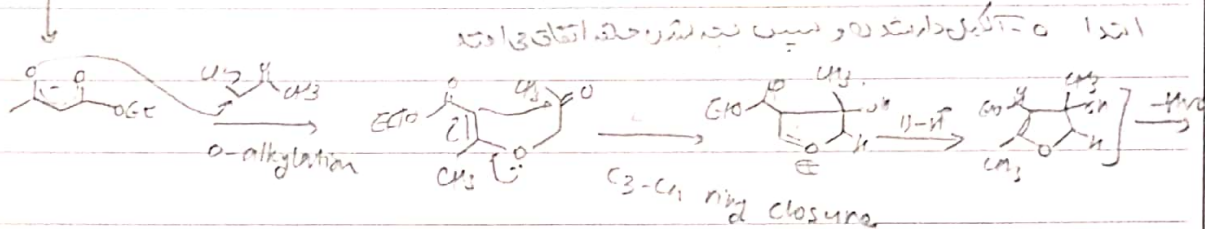 ابتدا O-آلکیل دار شدن و سپس بسته شدن حلقه اتفاق می افتد
O O OEt
CH3
O-alkylation
EtO O CH3 O
CH3 O
C3-C4 ring closure
EtO O CH3 OH
H O ⊕
1)-H⁺
CH3 OH
H O CH3